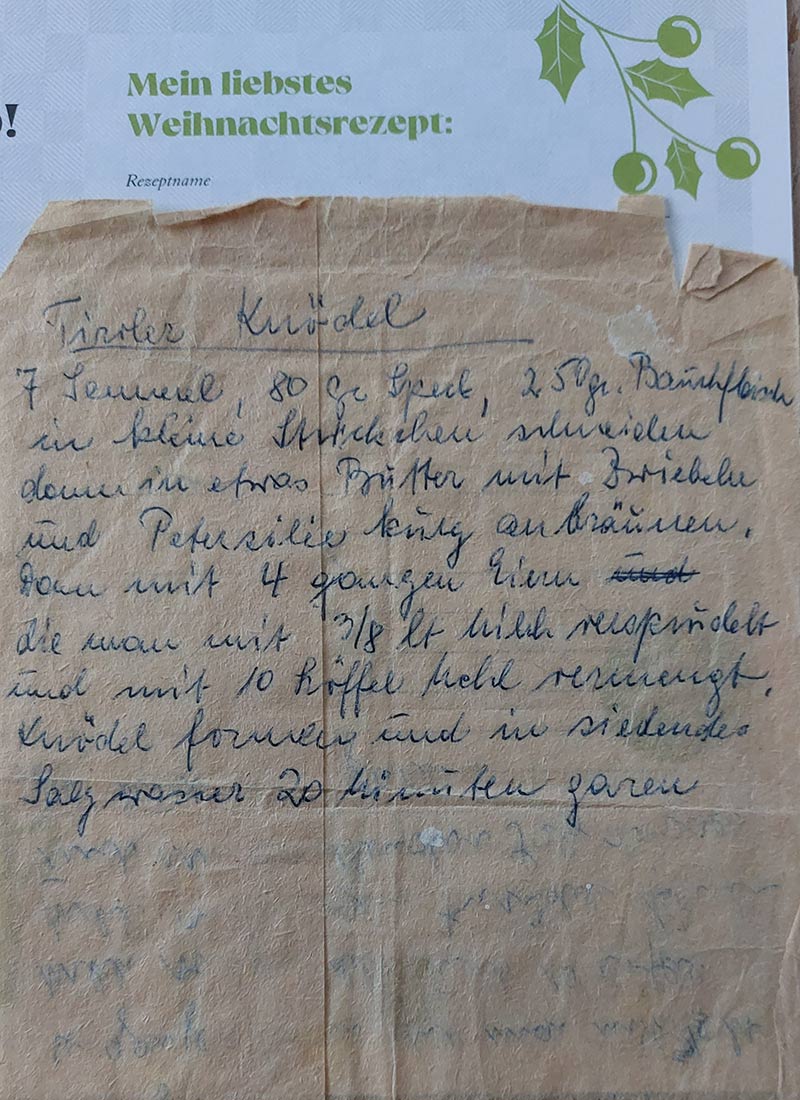 !
Mein liebstes
Weihnachtsrezept:
Rezeptname
Tiroler Knödel
7 Semmel, 80 gr Speck, 250gr. Bauchfleisch
in kleine Stückchen schneiden
dann in etwas Butter mit Zwiebeln
und Petersilie kurz anbräunen.
Dan mit 4 ganzen Eiern und
die man mit 3/8 lt Milch versprudelt
und mit 10 Löffel Mehl vermengt.
Knödel formen und in siedendes
Salzwasser 20 Minuten garen